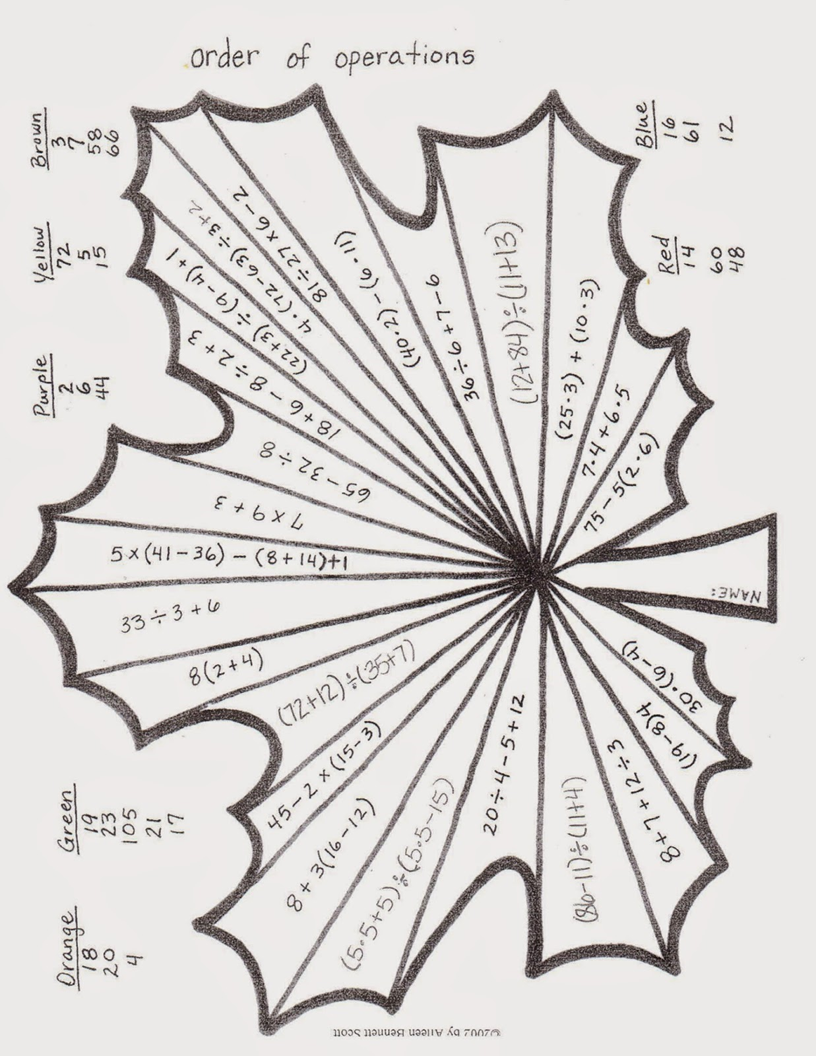 order of operations
Brown
3
7
58
66
Yellow
72
5
15
Purple
2
6
44
Green
19
23
105
21
17
Orange
18
20
4
Blue
16
61
12
Red
14
60
48
81÷27×6−2
4·(72−63)÷3+2
(22+3)÷(9−4)+1
18+6−8÷2+3
65−32÷8
7×9+3
5×(41−36)−(8+14)+1
33÷3+6
8(2+4)
(72+12)÷(35+7)
45−2×(15−3)
8+3(16−12)
(5·5+5)÷(5·5−15)
20÷4−5+12
(86−11)÷(11+4)
8+7+12÷3
(19−8)4
30·(6−4)
NAME:
75−5(2·6)
7·4+6·5
(25·3)+(10·3)
(12+84)÷(11+13)
36÷6+7−6
(40·2)−(6·11)
©2002 by Aileen Bennett Scott